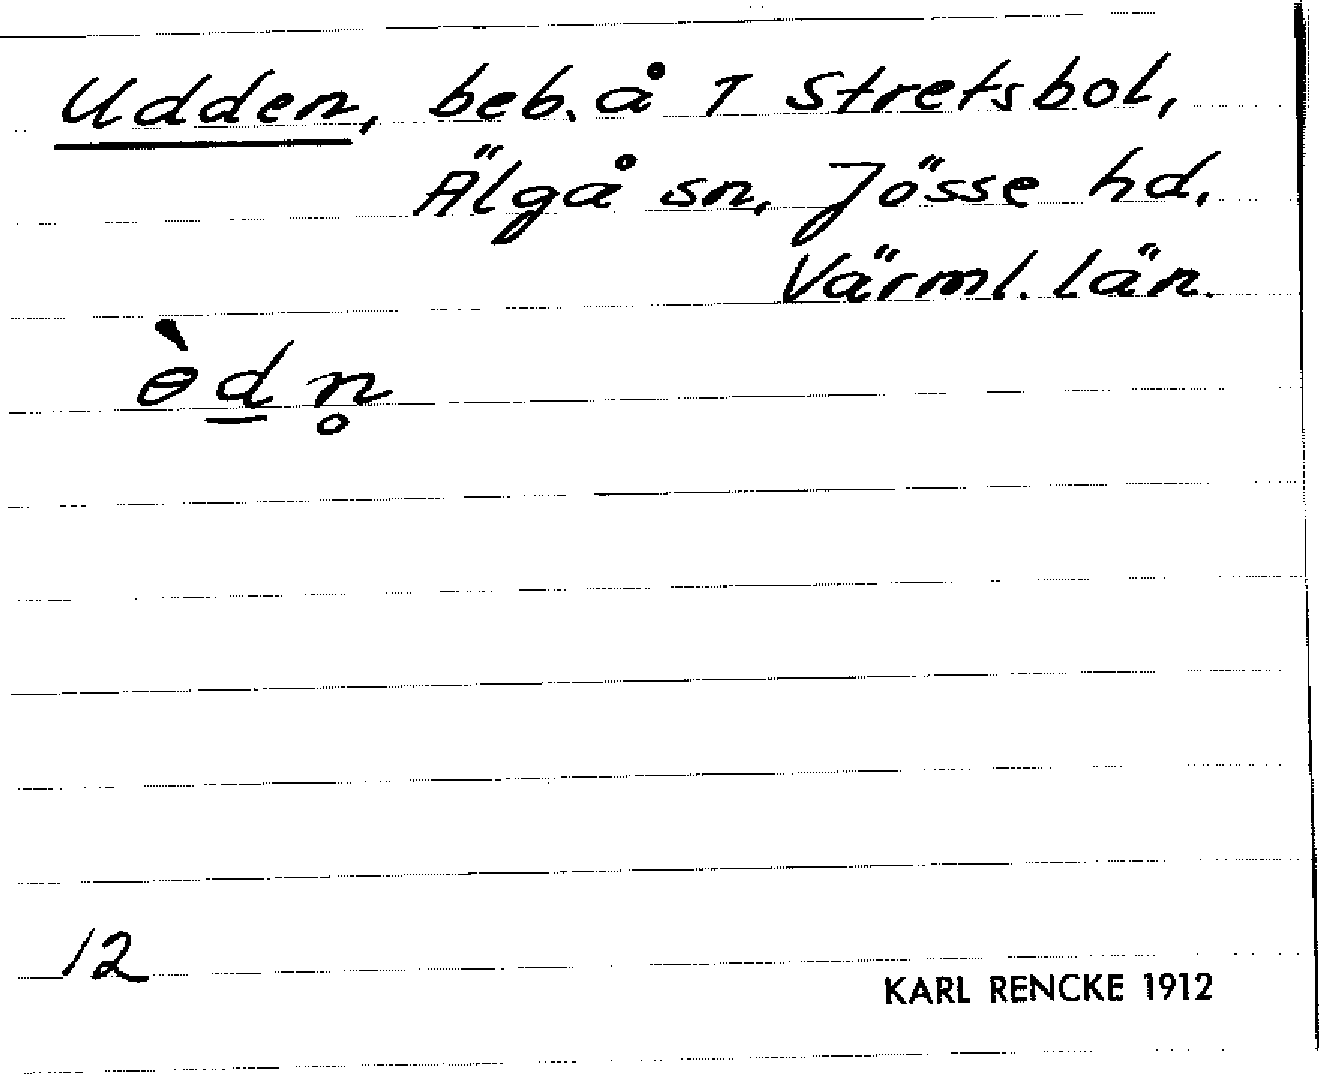 Udden, beb. å 1 Stretsbol,
Älgå sn, Jösse hd,
Värml. län.
ɵ̀d̲n̥
12
KARL RENCKE 1912